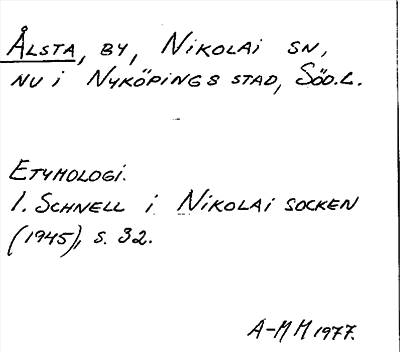 Ålsta, by, Nikolai sn,
nu i Nyköpings stad, Söd.l.
Etymologi.
I. Schnell i Nikolai socken
(1945), s. 32.
A-MM 1977.